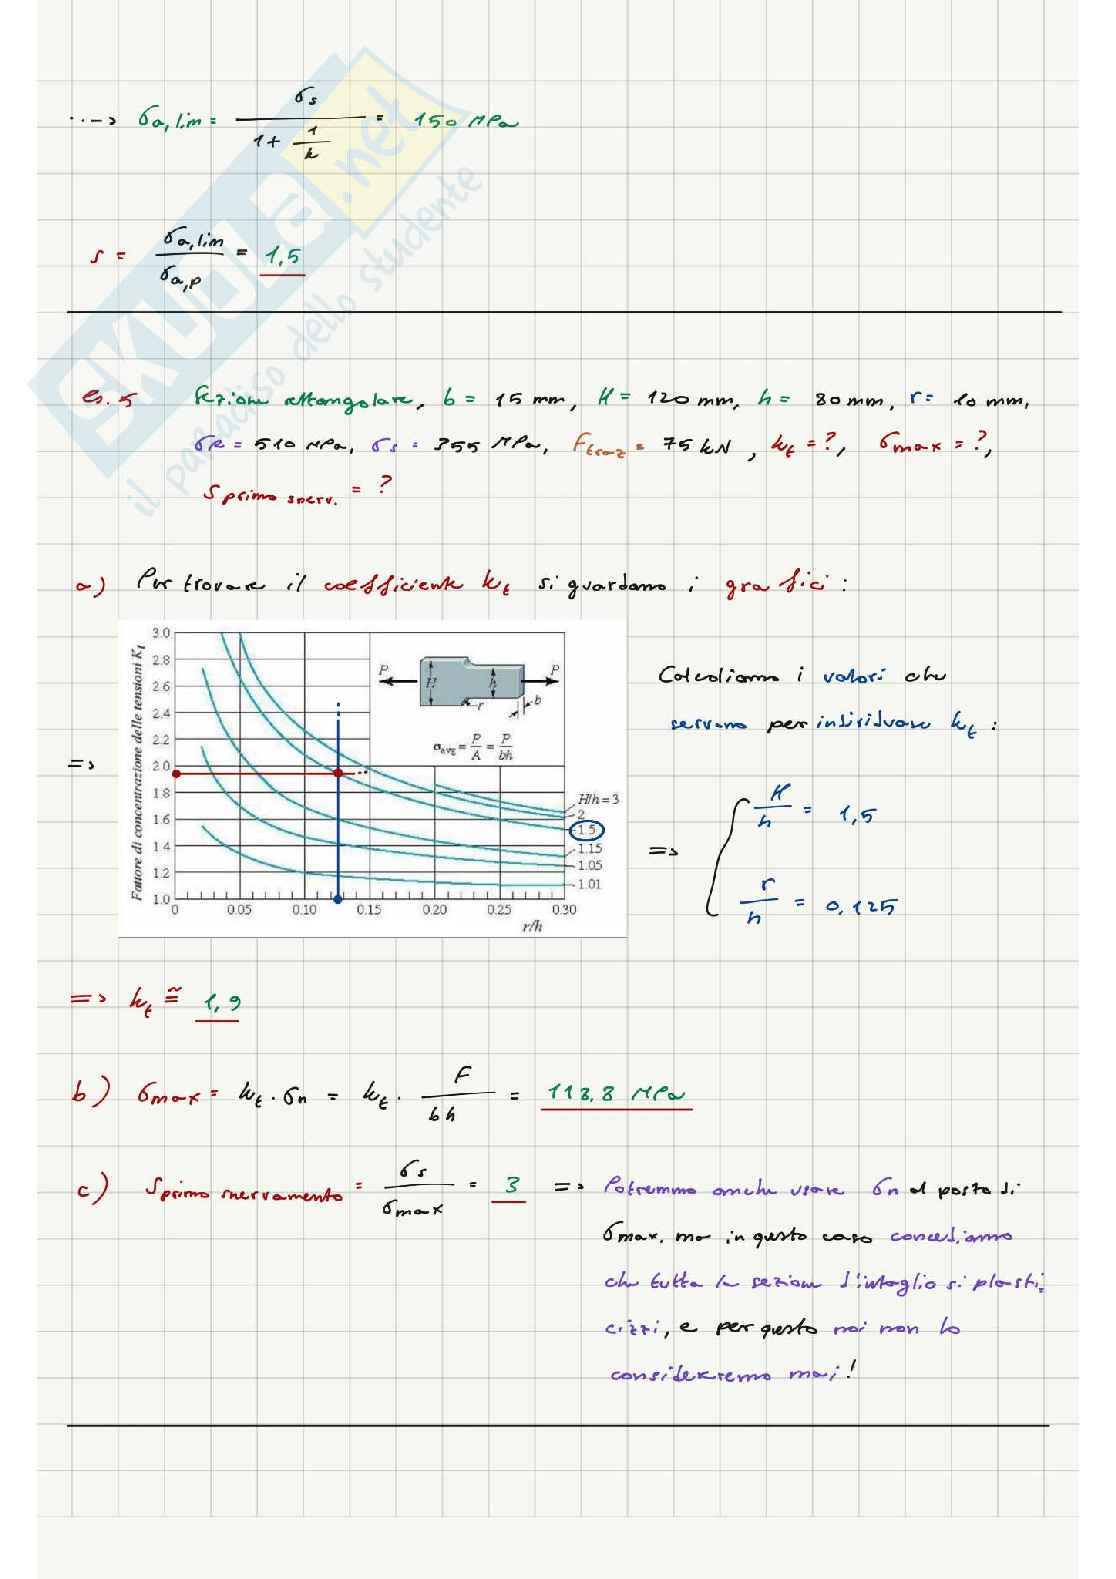 ··-> σa,lim = σs / (1 + 1/k) = 150 MPa
s = σa,lim / σa,p = 1,5
SKUOLA.net
il paradiso dello studente
es. 5 Sezione rettangolare, b = 15 mm, H = 120 mm, h = 80 mm, r = 10 mm,
σR = 510 MPa, σs = 355 MPa, Ftraz = 75 kN, kt = ?, σmax = ?,
s primo snerv. = ?
a) Per trovare il coefficiente kt si guardano i grafici:
=>
Fattore di concentrazione delle tensioni Kt
3.0
2.8
2.6
2.4
2.2
2.0
1.8
1.6
1.4
1.2
1.0
0 0.05 0.10 0.15 0.20 0.25 0.30
r/h
P H h r b P
σavg = P/A = P/bh
H/h = 3
2
1.5
1.15
1.05
1.01
Calcoliamo i valori che
servono per individuare kt:
=> { H/h = 1,5
r/h = 0,125
=> kt ≅ 1,9
b) σmax = kt · σn = kt · F / bh = 118,8 MPa
c) s primo snervamento = σs / σmax = 3 => Potremmo anche usare σn al posto di
σmax, ma in questo caso concediamo
che tutta la sezione d'intaglio si plasti-
cizzi, e per questo noi non lo
considereremo mai!